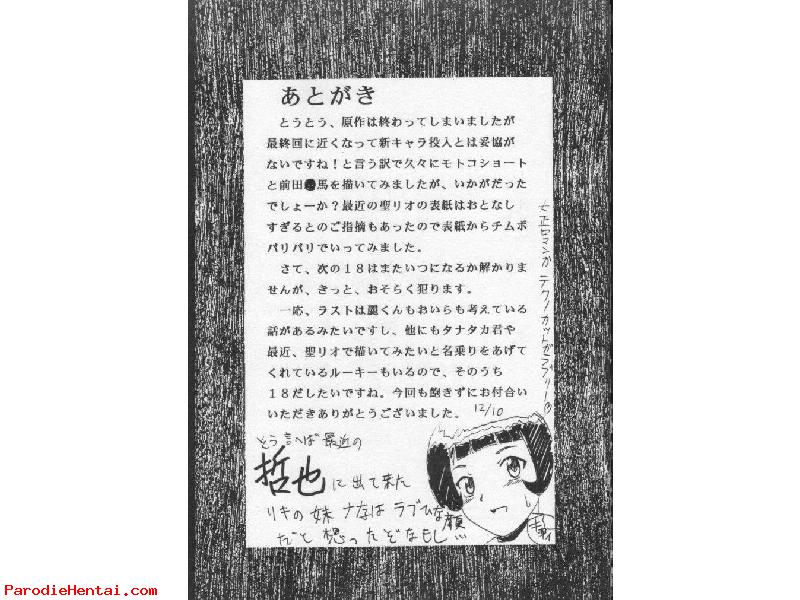 あとがき
とうとう、原作は終わってしまいましたが
最終回に近くなって新キャラ投入とは妥協が
ないですね！と言う訳で久々にモトコショート
と前田●馬を描いてみましたが、いかがだった
でしょーか？最近の聖リオの表紙はおとなし
すぎるとのご指摘もあったので表紙からチムポ
バリバリでいってみました。
さて、次の１８はまたいつになるか解かりま
せんが、きっと、おそらく犯ります。
一応、ラストは麗くんもおいらも考えている
話があるみたいですし、他にもタナタカ君や
最近、聖リオで描いてみたいと名乗りをあげて
くれているルーキーもいるので、そのうち
１８だしたいですね。今回も飽きずにお付合い
いただきありがとうございました。 12/10
そう言へば最近の
哲也に出て来た
リキの妹 ナナはラブひな顔
だと想ったぞなもし
ParodieHentai.com